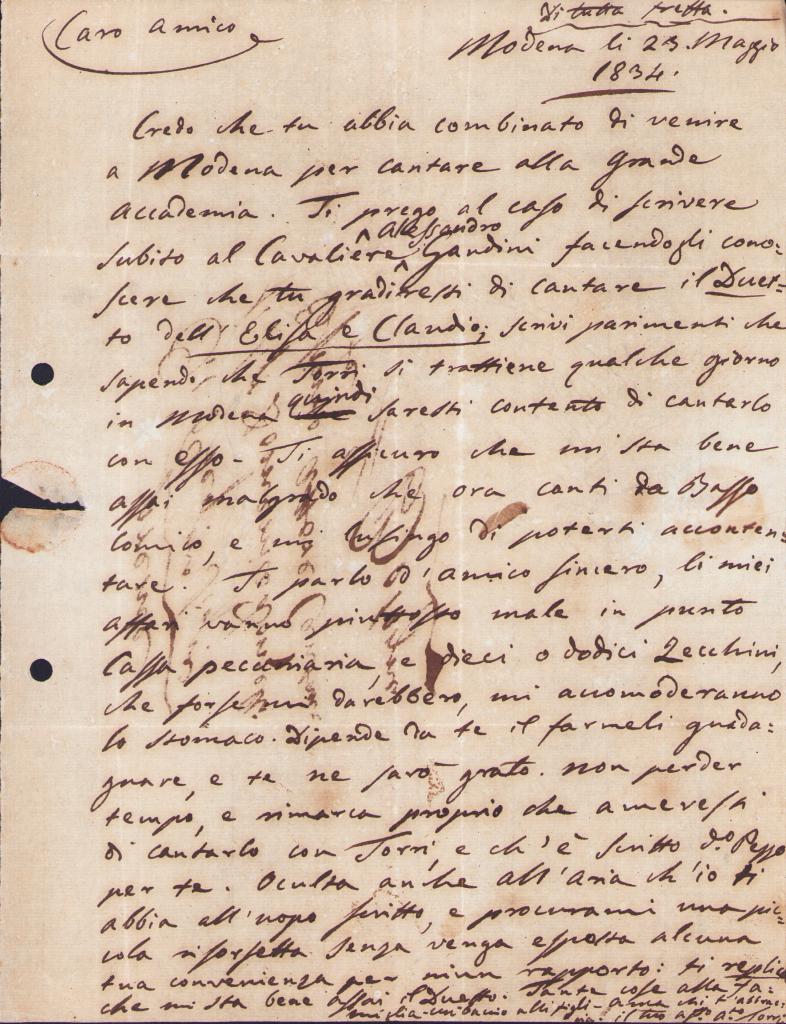 Di tutta fretta.
Caro Amico
Modena li 23. Maggio
1834.
Credo che tu abbia combinato di venire
a Modena per cantare alla Grande
Accademia. Ti prego al caso di scrivere
Alessandro
subito al Cavaliêre Gandini facendogli cono=
scere che tu gradiresti di cantare il Duet=
to dell' Elisa e Claudio; scrivi parimenti che
sapendo che Torri si trattiene qualche giorno
quindi
in Modena saresti contento di cantarlo
con esso - Ti assicuro che mi sta bene
assai malgrado che ora canti da Basso
Comico, e mi lusingo di poterti acconten=
tare. Ti parlo d'amico sincero, li miei
affari vanno piuttosto male in punto
Cassa pecuniaria, e dieci o dodici Zecchini,
che forse mi darebbero, mi accomoderanno
lo stomaco. Dipende da te il farmeli guada=
gnare, e te ne sarò grato. Non perder
tempo, e rimarca proprio che ameresti
di cantarlo con Torri, e ch'è scritto d.o Pezzo
per te. Occulta anche all'Aria ch'io ti
abbia all'uopo scritto, e procurami una pic=
cola risorsetta senza venga esposta alcuna
tua convenienza per niun rapporto: ti replico
che mi sta bene assai il Duetto. Tante cose alla Fa=
miglia - un bacio alli figli - ama chi t'assicura
il tuo aff.o a.o Torri